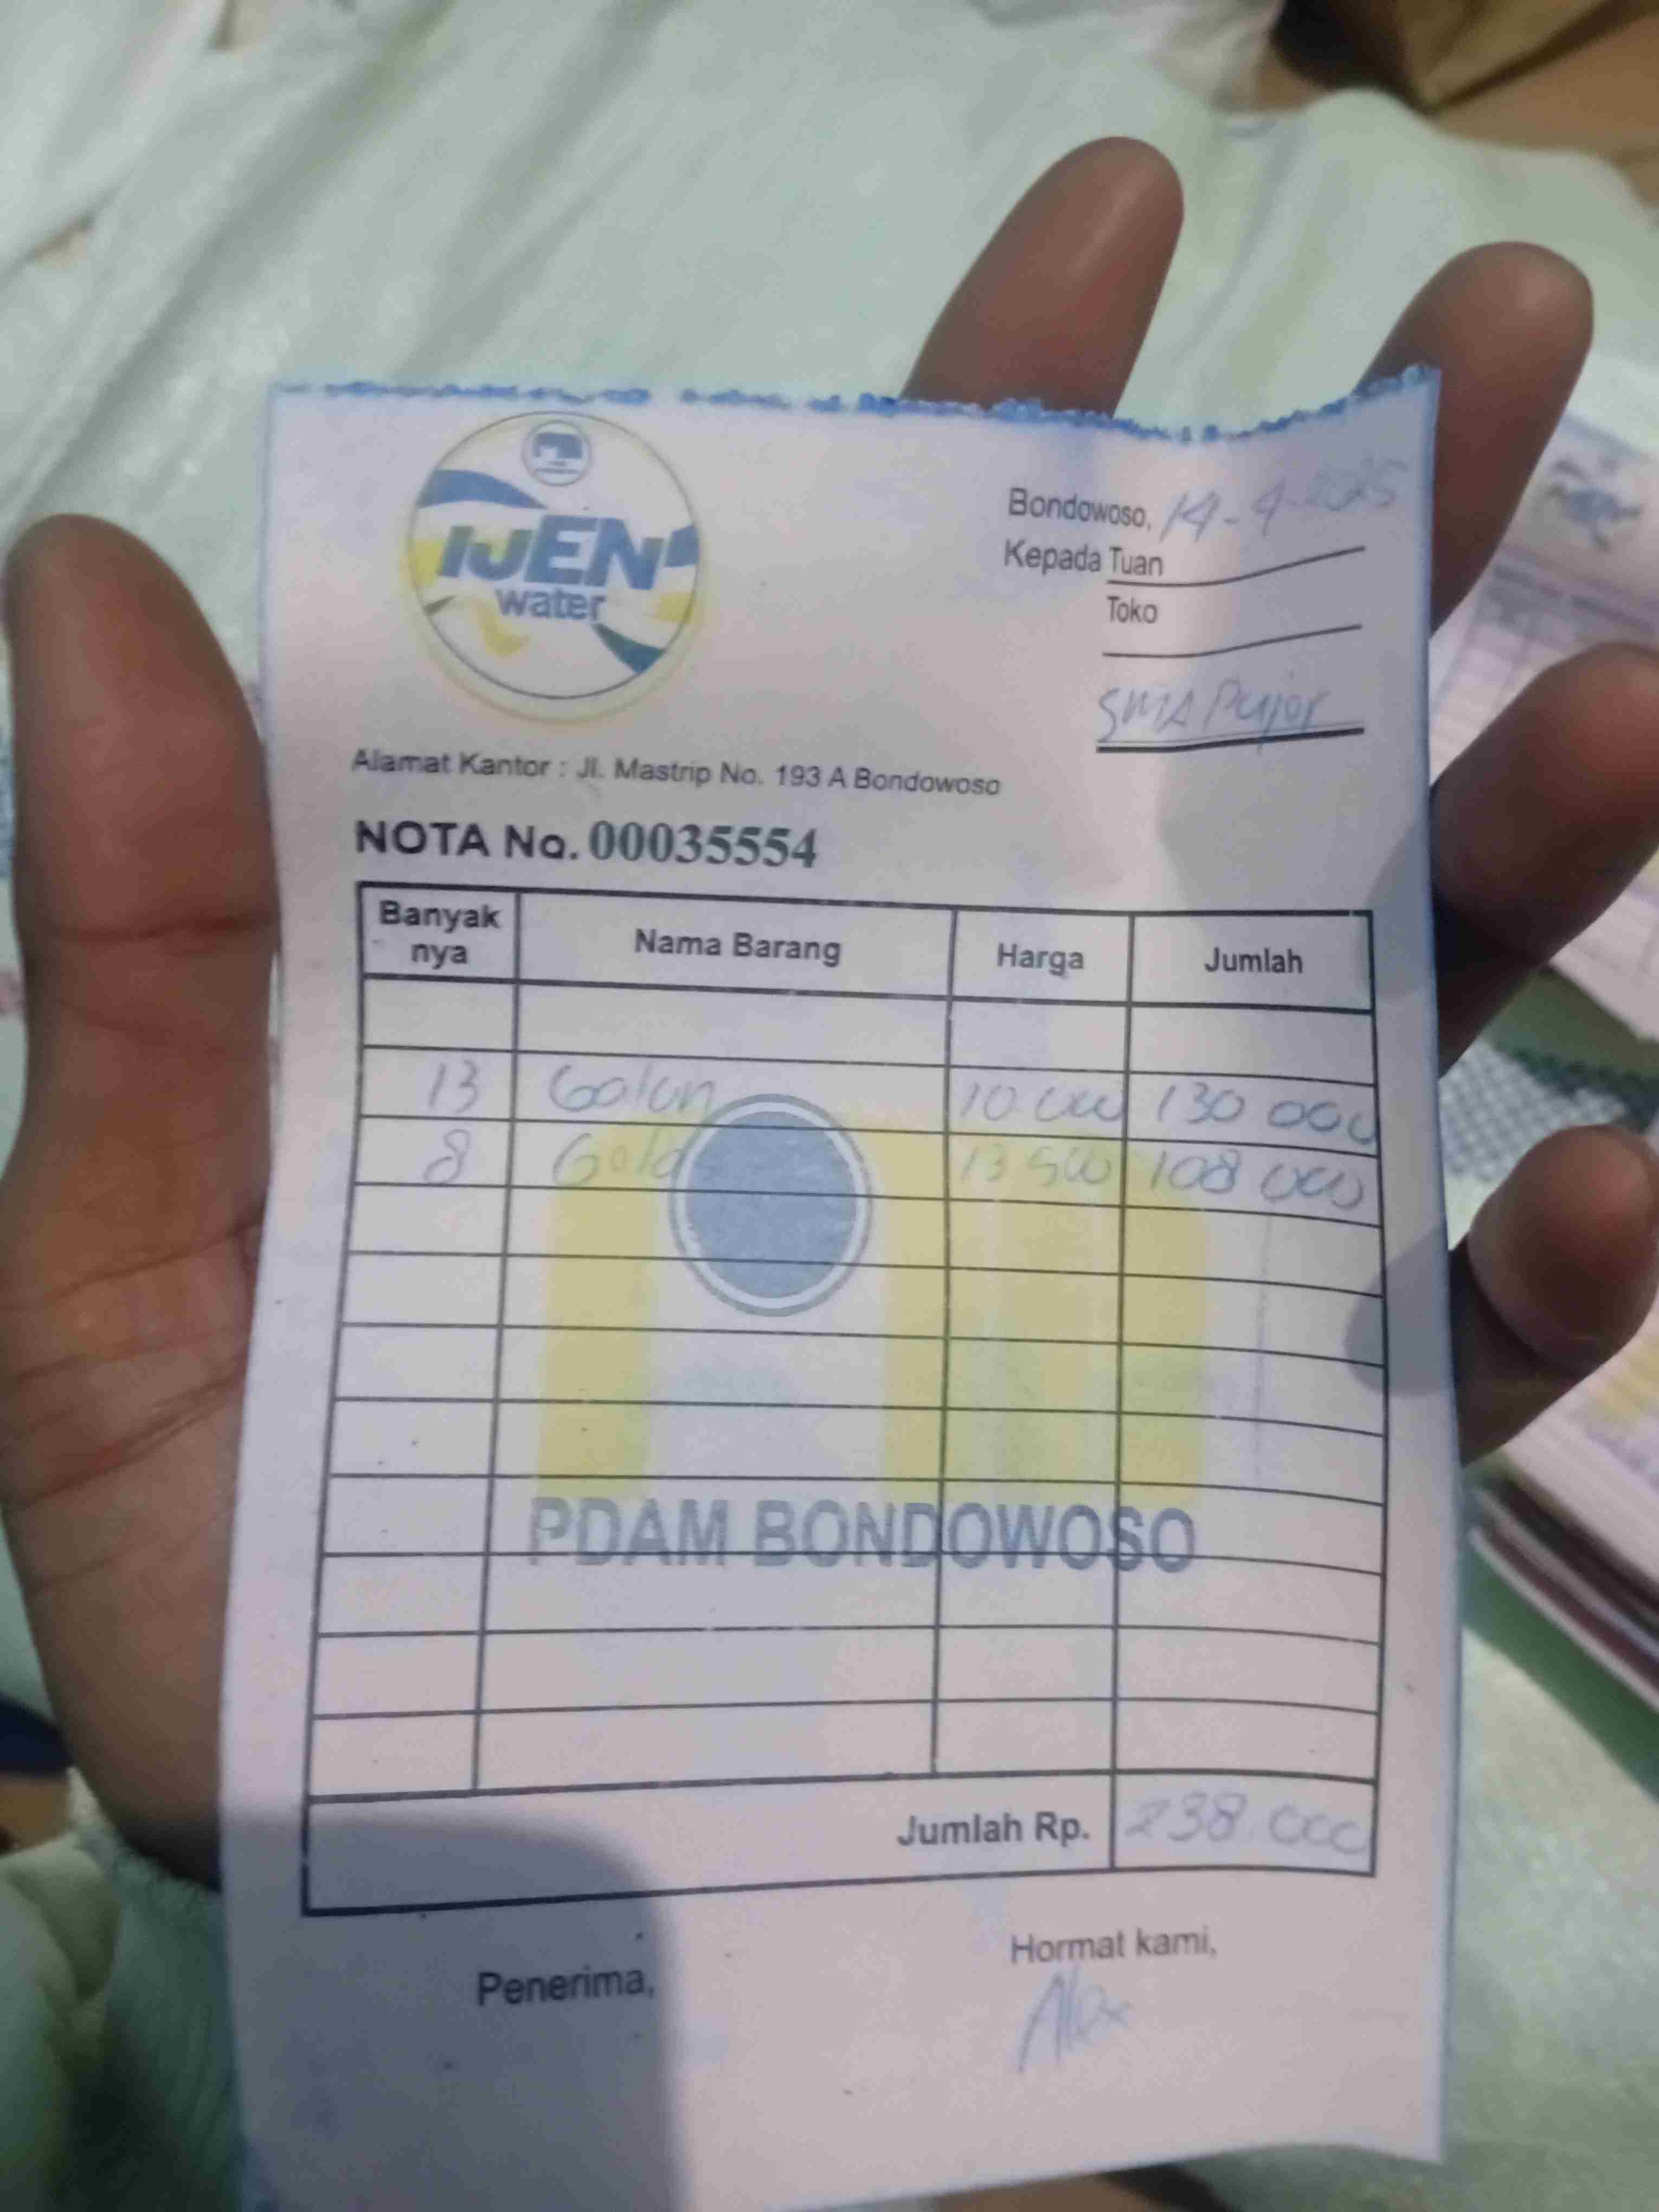 IJEN
water
Bondowoso, 14-4-2025
Kepada Tuan
Toko
SMA Pujer
Alamat Kantor : Jl. Mastrip No. 193 A Bondowoso
NOTA No. 00035554
Banyak nya Nama Barang Harga Jumlah
13 Galon 10.000 130 000
8 Galon 13 500 108 000
PDAM BONDOWOSO
Jumlah Rp. 238.000
Hormat kami,
Penerima,
Alex